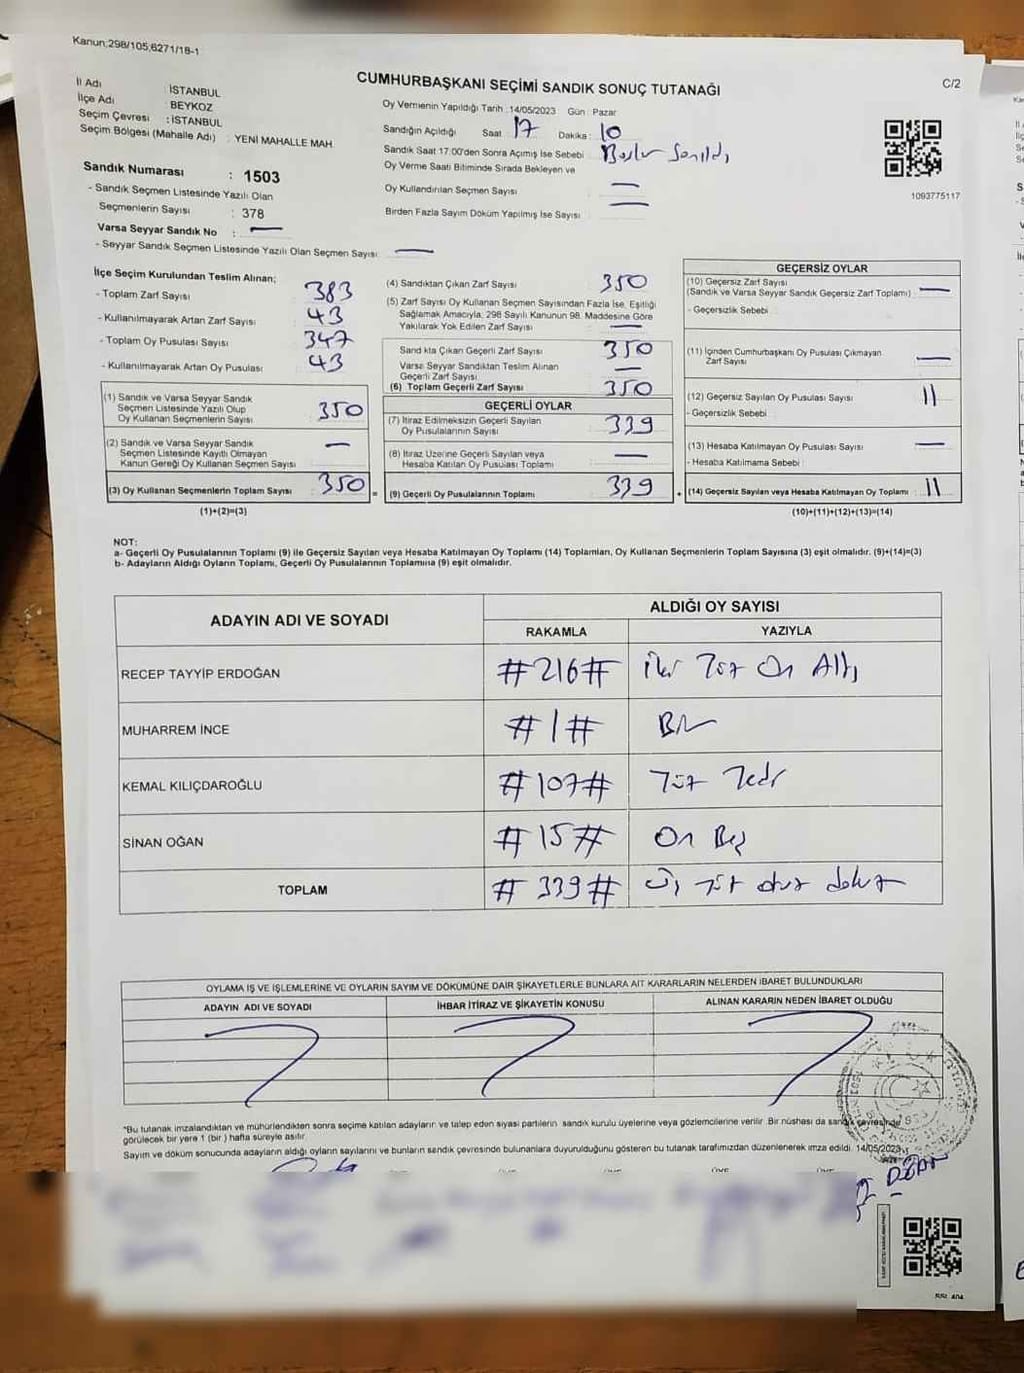 Kanun;298/105;6271/18-1
CUMHURBAŞKANI SEÇİMİ SANDIK SONUÇ TUTANAĞI
C/2
İl Adı : İSTANBUL
İlçe Adı : BEYKOZ
Seçim Çevresi : İSTANBUL
Seçim Bölgesi (Mahalle Adı) : YENİ MAHALLE MAH.
Sandık Numarası : 1503
- Sandık Seçmen Listesinde Yazılı Olan
Seçmenlerin Sayısı : 378
Varsa Seyyar Sandık No : —
- Seyyar Sandık Seçmen Listesinde Yazılı Olan Seçmen Sayısı: —
Oy Vermenin Yapıldığı Tarih : 14/05/2023 Gün : Pazar
Sandığın Açıldığı Saat : 17 Dakika : 10
Sandık Saat 17:00'den Sonra Açımış İse Sebebi
Oy Verme Saati Bitiminde Sırada Bekleyen ve
Oy Kullandırılan Seçmen Sayısı —
Birden Fazla Sayım Döküm Yapılmış İse Sayısı —
1093775117
İlçe Seçim Kurulundan Teslim Alınan;
- Toplam Zarf Sayısı 383
- Kullanılmayarak Artan Zarf Sayısı 43
- Toplam Oy Pusulası Sayısı 347
- Kullanılmayarak Artan Oy Pusulası 43
(1) Sandık ve Varsa Seyyar Sandık
Seçmen Listesinde Yazılı Olup
Oy Kullanan Seçmenlerin Sayısı 350
(2) Sandık ve Varsa Seyyar Sandık
Seçmen Listesinde Kayıtlı Olmayan
Kanun Gereği Oy Kullanan Seçmen Sayısı —
(3) Oy Kullanan Seçmenlerin Toplam Sayısı 350 =
(1)+(2)=(3)
(4) Sandıktan Çıkan Zarf Sayısı 350
(5) Zarf Sayısı Oy Kullanan Seçmen Sayısından Fazla İse, Eşitliği
Sağlamak Amacıyla, 298 Sayılı Kanunun 98. Maddesine Göre
Yakılarak Yok Edilen Zarf Sayısı —
Sandıkta Çıkan Geçerli Zarf Sayısı 350
Varsa Seyyar Sandıktan Teslim Alınan
Geçerli Zarf Sayısı —
(6) Toplam Geçerli Zarf Sayısı 350
GEÇERLİ OYLAR
(7) İtiraz Edilmeksizin Geçerli Sayılan
Oy Pusulalarının Sayısı 339
(8) İtiraz Üzerine Geçerli Sayılan veya
Hesaba Katılan Oy Pusulası Toplamı —
(9) Geçerli Oy Pusulalarının Toplamı 339 +
GEÇERSİZ OYLAR
(10) Geçersiz Zarf Sayısı
(Sandık ve Varsa Seyyar Sandık Geçersiz Zarf Toplamı) —
- Geçersizlik Sebebi :
(11) İçinden Cumhurbaşkanı Oy Pusulası Çıkmayan
Zarf Sayısı —
(12) Geçersiz Sayılan Oy Pusulası Sayısı 11
- Geçersizlik Sebebi :
(13) Hesaba Katılmayan Oy Pusulası Sayısı —
- Hesaba Katılmama Sebebi :
(14) Geçersiz Sayılan veya Hesaba Katılmayan Oy Toplamı : 11
(10)+(11)+(12)+(13)=(14)
NOT:
a- Geçerli Oy Pusulalarının Toplamı (9) ile Geçersiz Sayılan veya Hesaba Katılmayan Oy Toplamı (14) Toplamları, Oy Kullanan Seçmenlerin Toplam Sayısına (3) eşit olmalıdır. (9)+(14)=(3)
b- Adayların Aldığı Oyların Toplamı, Geçerli Oy Pusulalarının Toplamına (9) eşit olmalıdır.
ADAYIN ADI VE SOYADI
ALDIĞI OY SAYISI
RAKAMLA YAZIYLA
RECEP TAYYİP ERDOĞAN #216# İki Yüz On Altı
MUHARREM İNCE #1# Bir
KEMAL KILIÇDAROĞLU #107# Yüz Yedi
SİNAN OĞAN #15# On Beş
TOPLAM #339# Üç Yüz otuz dokuz
OYLAMA İŞ VE İŞLEMLERİNE VE OYLARIN SAYIM VE DÖKÜMÜNE DAİR ŞİKAYETLERLE BUNLARA AİT KARARLARIN NELERDEN İBARET BULUNDUKLARI
ADAYIN ADI VE SOYADI İHBAR İTİRAZ VE ŞİKAYETİN KONUSU ALINAN KARARIN NEDEN İBARET OLDUĞU
*Bu tutanak imzalandıktan ve mühürlendikten sonra seçime katılan adayların ve talep eden siyasi partilerin sandık kurulu üyelerine veya gözlemcilerine verilir. Bir nüshası da sandık çevresinde
görülecek bir yere 1 (bir ) hafta süreyle asılır.
Sayım ve döküm sonucunda adayların aldığı oyların sayılarını ve bunların sandık çevresinde bulunanlara duyurulduğunu gösteren bu tutanak tarafımızdan düzenlenerek imza edildi. 14/05/2023